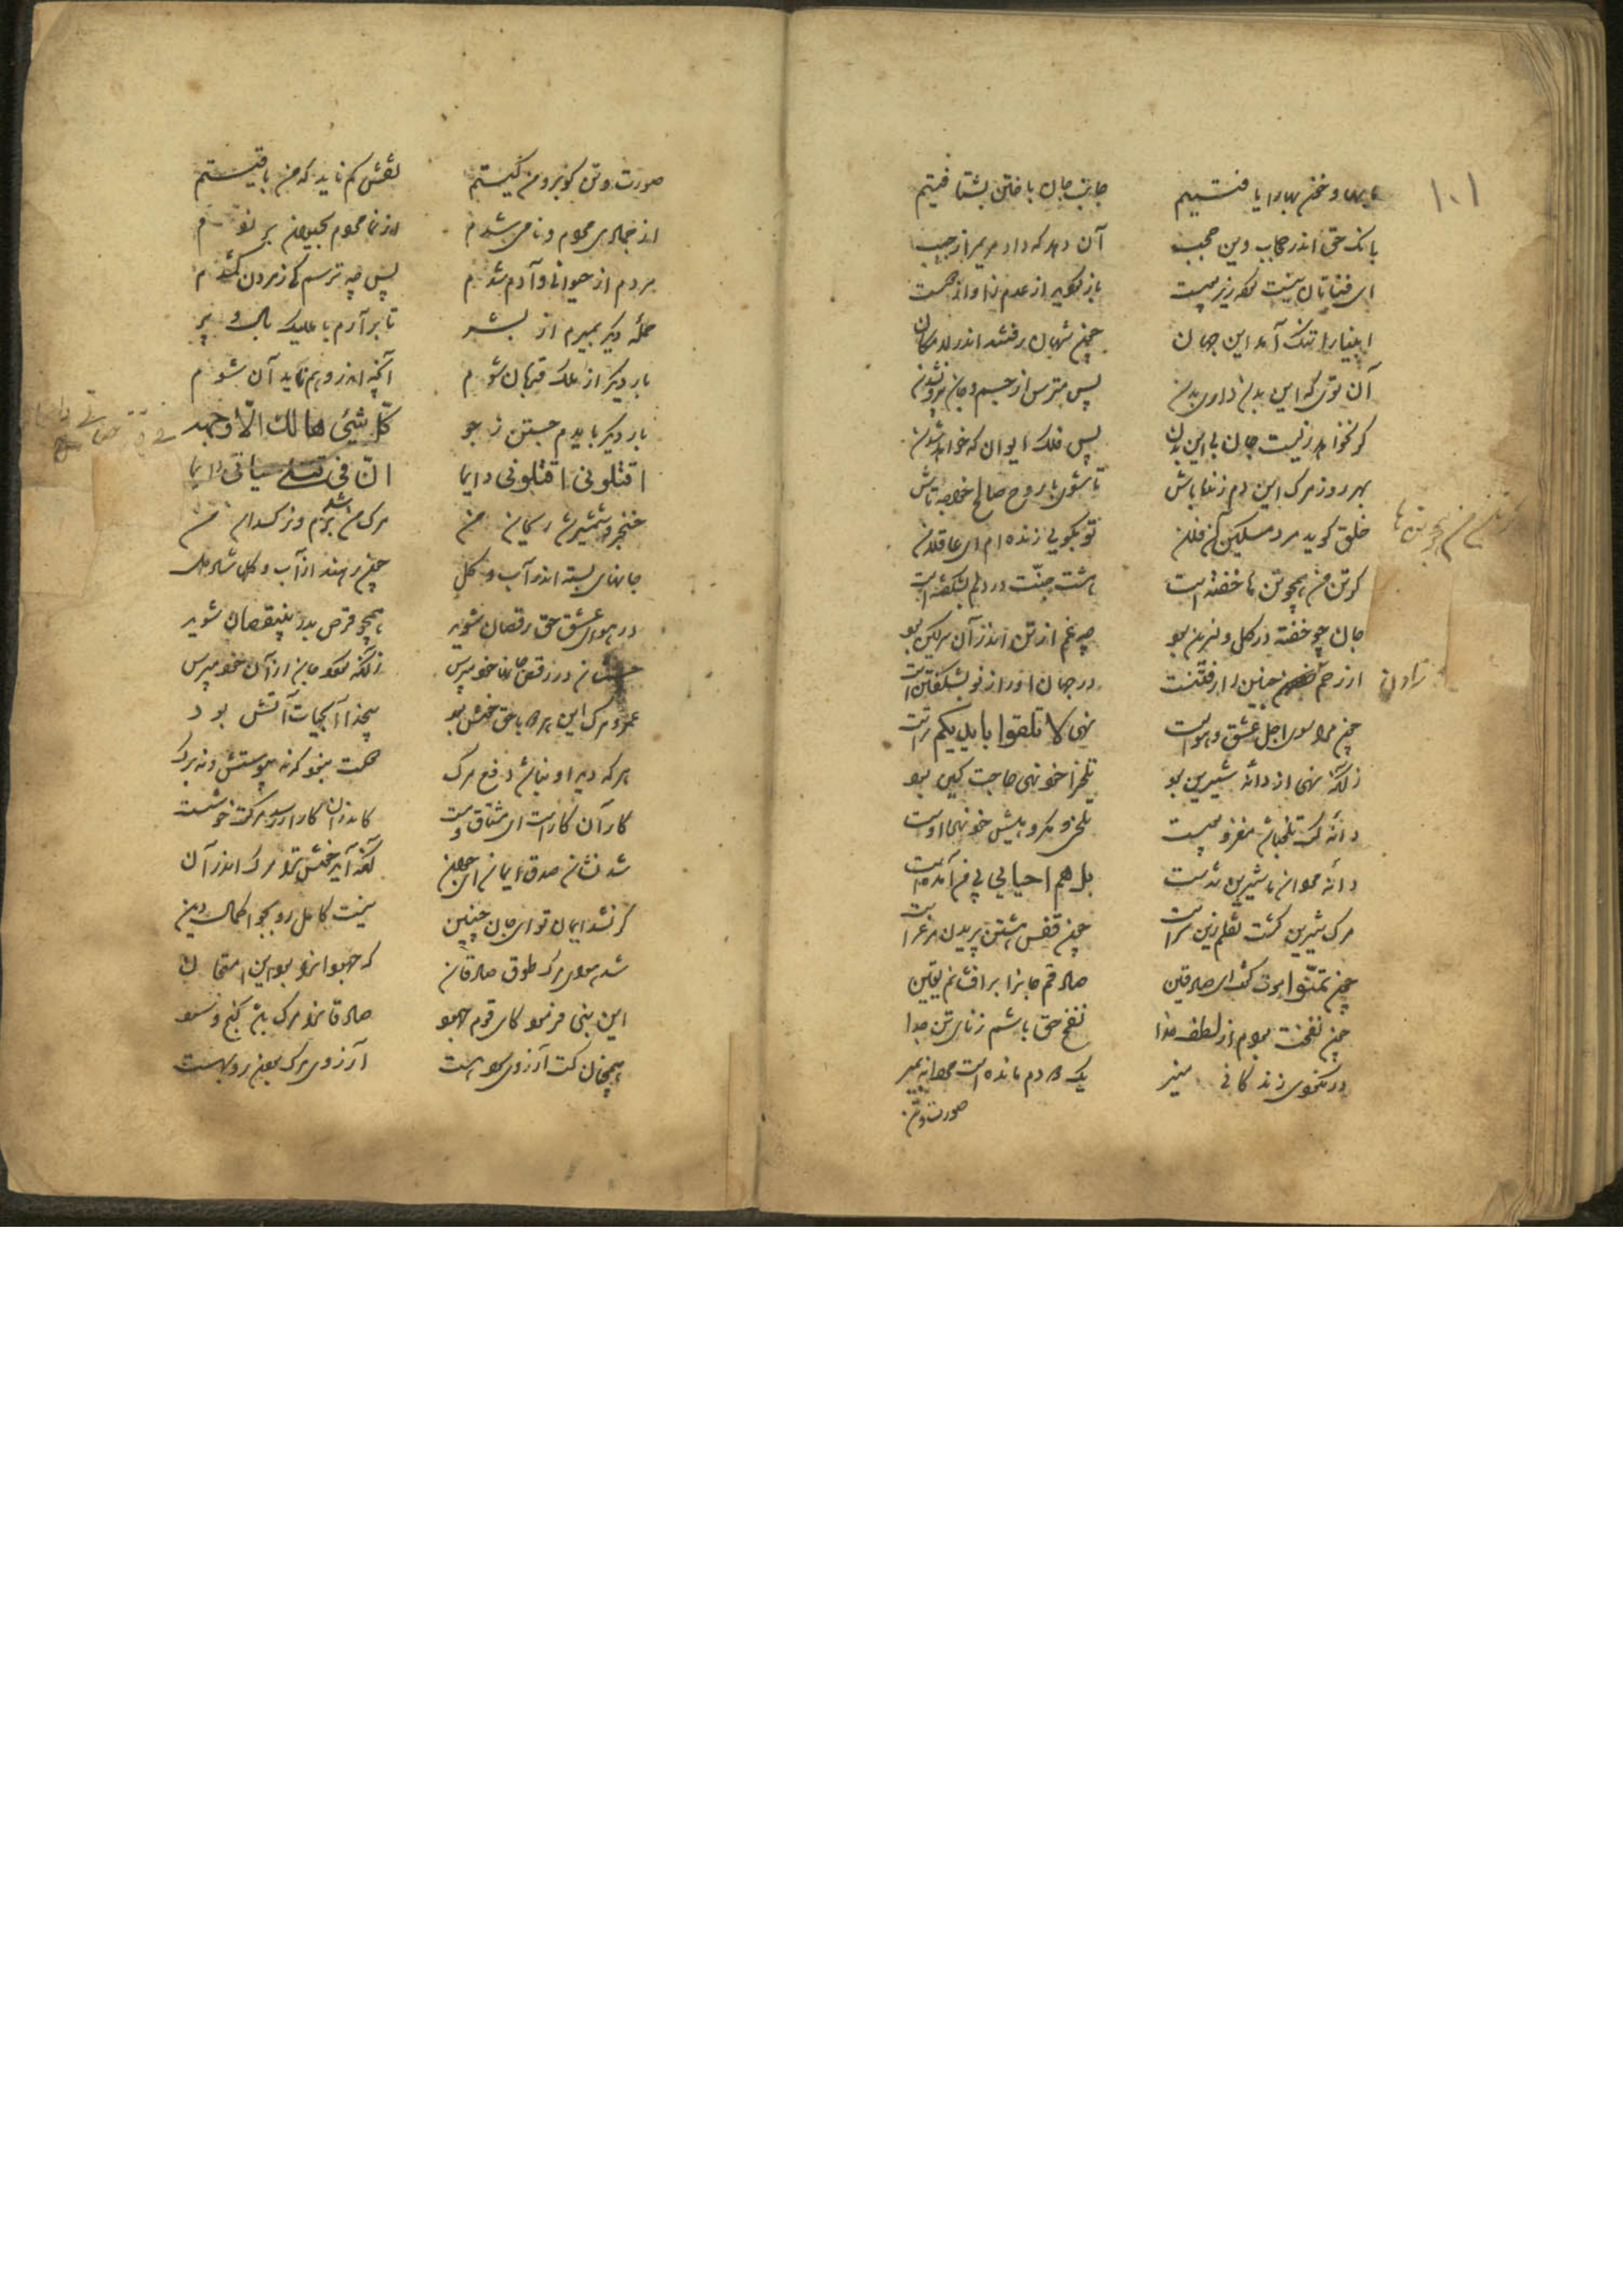 ۱۰۱
ما بها و خونبها را یافتیم جانب جان باختن بشتافتیم
بانک حق اندر حجاب و بی حجب آن دهد که داد مریم را ز جیب
ای فناتان نیست کرده زیر پوست باز کردید از عدم ز آواز دوست
انبیا را تنک آمد این جهان چون شهان رفتند اندر لامکان
آن توی که بی بدن داری بدن پس مترس از جسم و جان بیرون شدن
کر نخواهد زیست جان بی این بدن پس فلک ایوان که خواهد شدن
بهر روز مرک این دم زنده باش تا شوی با روح صالح خواجه تاش
خلق کوید مرد مسکین آن فلان تو بکویی زنده ام ای غافلان
کر تن من همچو تن ها خفته است هشت جنت در دلم بشکفته است
جان چو خفته در کل و نسرین بود چه غم از تن اندر آن سرکین بود
از رحم زادن جنین را رفتنست در جهان او را ز نو بشکفتنست
چون مرا سوی اجل عشق و هواست نهی لا تلقوا بایدیکم مراست
زانکه نهی از دانه شیرین بود تلخ را خود نهی حاجت کی بود
دانه کش تلخ باشد مغز و پوست تلخی و مکروهیش خود نهی اوست
دانه مردن مرا شیرین شدست بل هم احیایی پی من آمده است
مرک شیرین کشت و نقلم زین سرا چون قفس هشتن پریدن مرغ را
چون تمنوا موت کفت ای صادقین صادقم جان را برافشانم بقین
چون نفخت بودم از لطف خدا نفخ حق باشم ز نای تن جدا
در نکر زندکانی منیر یک دو دم مانده است مردانه بمیر
صورت تن
صورت تن کو برو من کیستم نقش کم ناید که من باقیستم
از جمادی مردم و نامی شدم وز نما مردم بحیوان بر زدم
مردم از حیوانی و آدم شدم پس چه ترسم کی ز مردن کم شدم
حمله دیکر بمیرم از بشر تا برآرم با ملایک بال و پر
بار دیکر از ملک قربان شوم آنچه اندر وهم ناید آن شوم
بار دیکر بایدم جستن ز جو کل شیئ هالک الا وجهه
اقتلونی اقتلونی دایما ان فی قتلی حیاتی دایما
خنجر و شمشیر شد ریحان من مرک من شد بزم و نرکسدان من
جانهای بسته اندر آب و کل چون رهند از آب و کلها شاد دل
در هوای عشق حق رقصان شوند همچو قرص بدر بی نقصان شوند
جسمشان در رقص جانها خود مپرس زانکه کرد جان از آن خود مپرس
عمر و مرک این هر دو با حق خوش بود بیخدا آب حیات آتش بود
هر که دید او نباشد دفع مرک
کار آن کارست ای مشتاق مست کاندر آن کار ار رسد مرکت خوشست
شد نشان صدق ایمان ای جوان آنکه آید خوش ترا مرک اندر آن
کر نشد ایمان تو ای جان چنین نیست کامل رو بجو اکمال دین
شد هوای مرک طوق صادقان که جهودان را بد این امتحان
این نبی فرمود کای قوم جهود صادقان را مرک باشد کنج و سود
همچنان که آرزوی سود هست آرزوی مرک بردن زو بهست